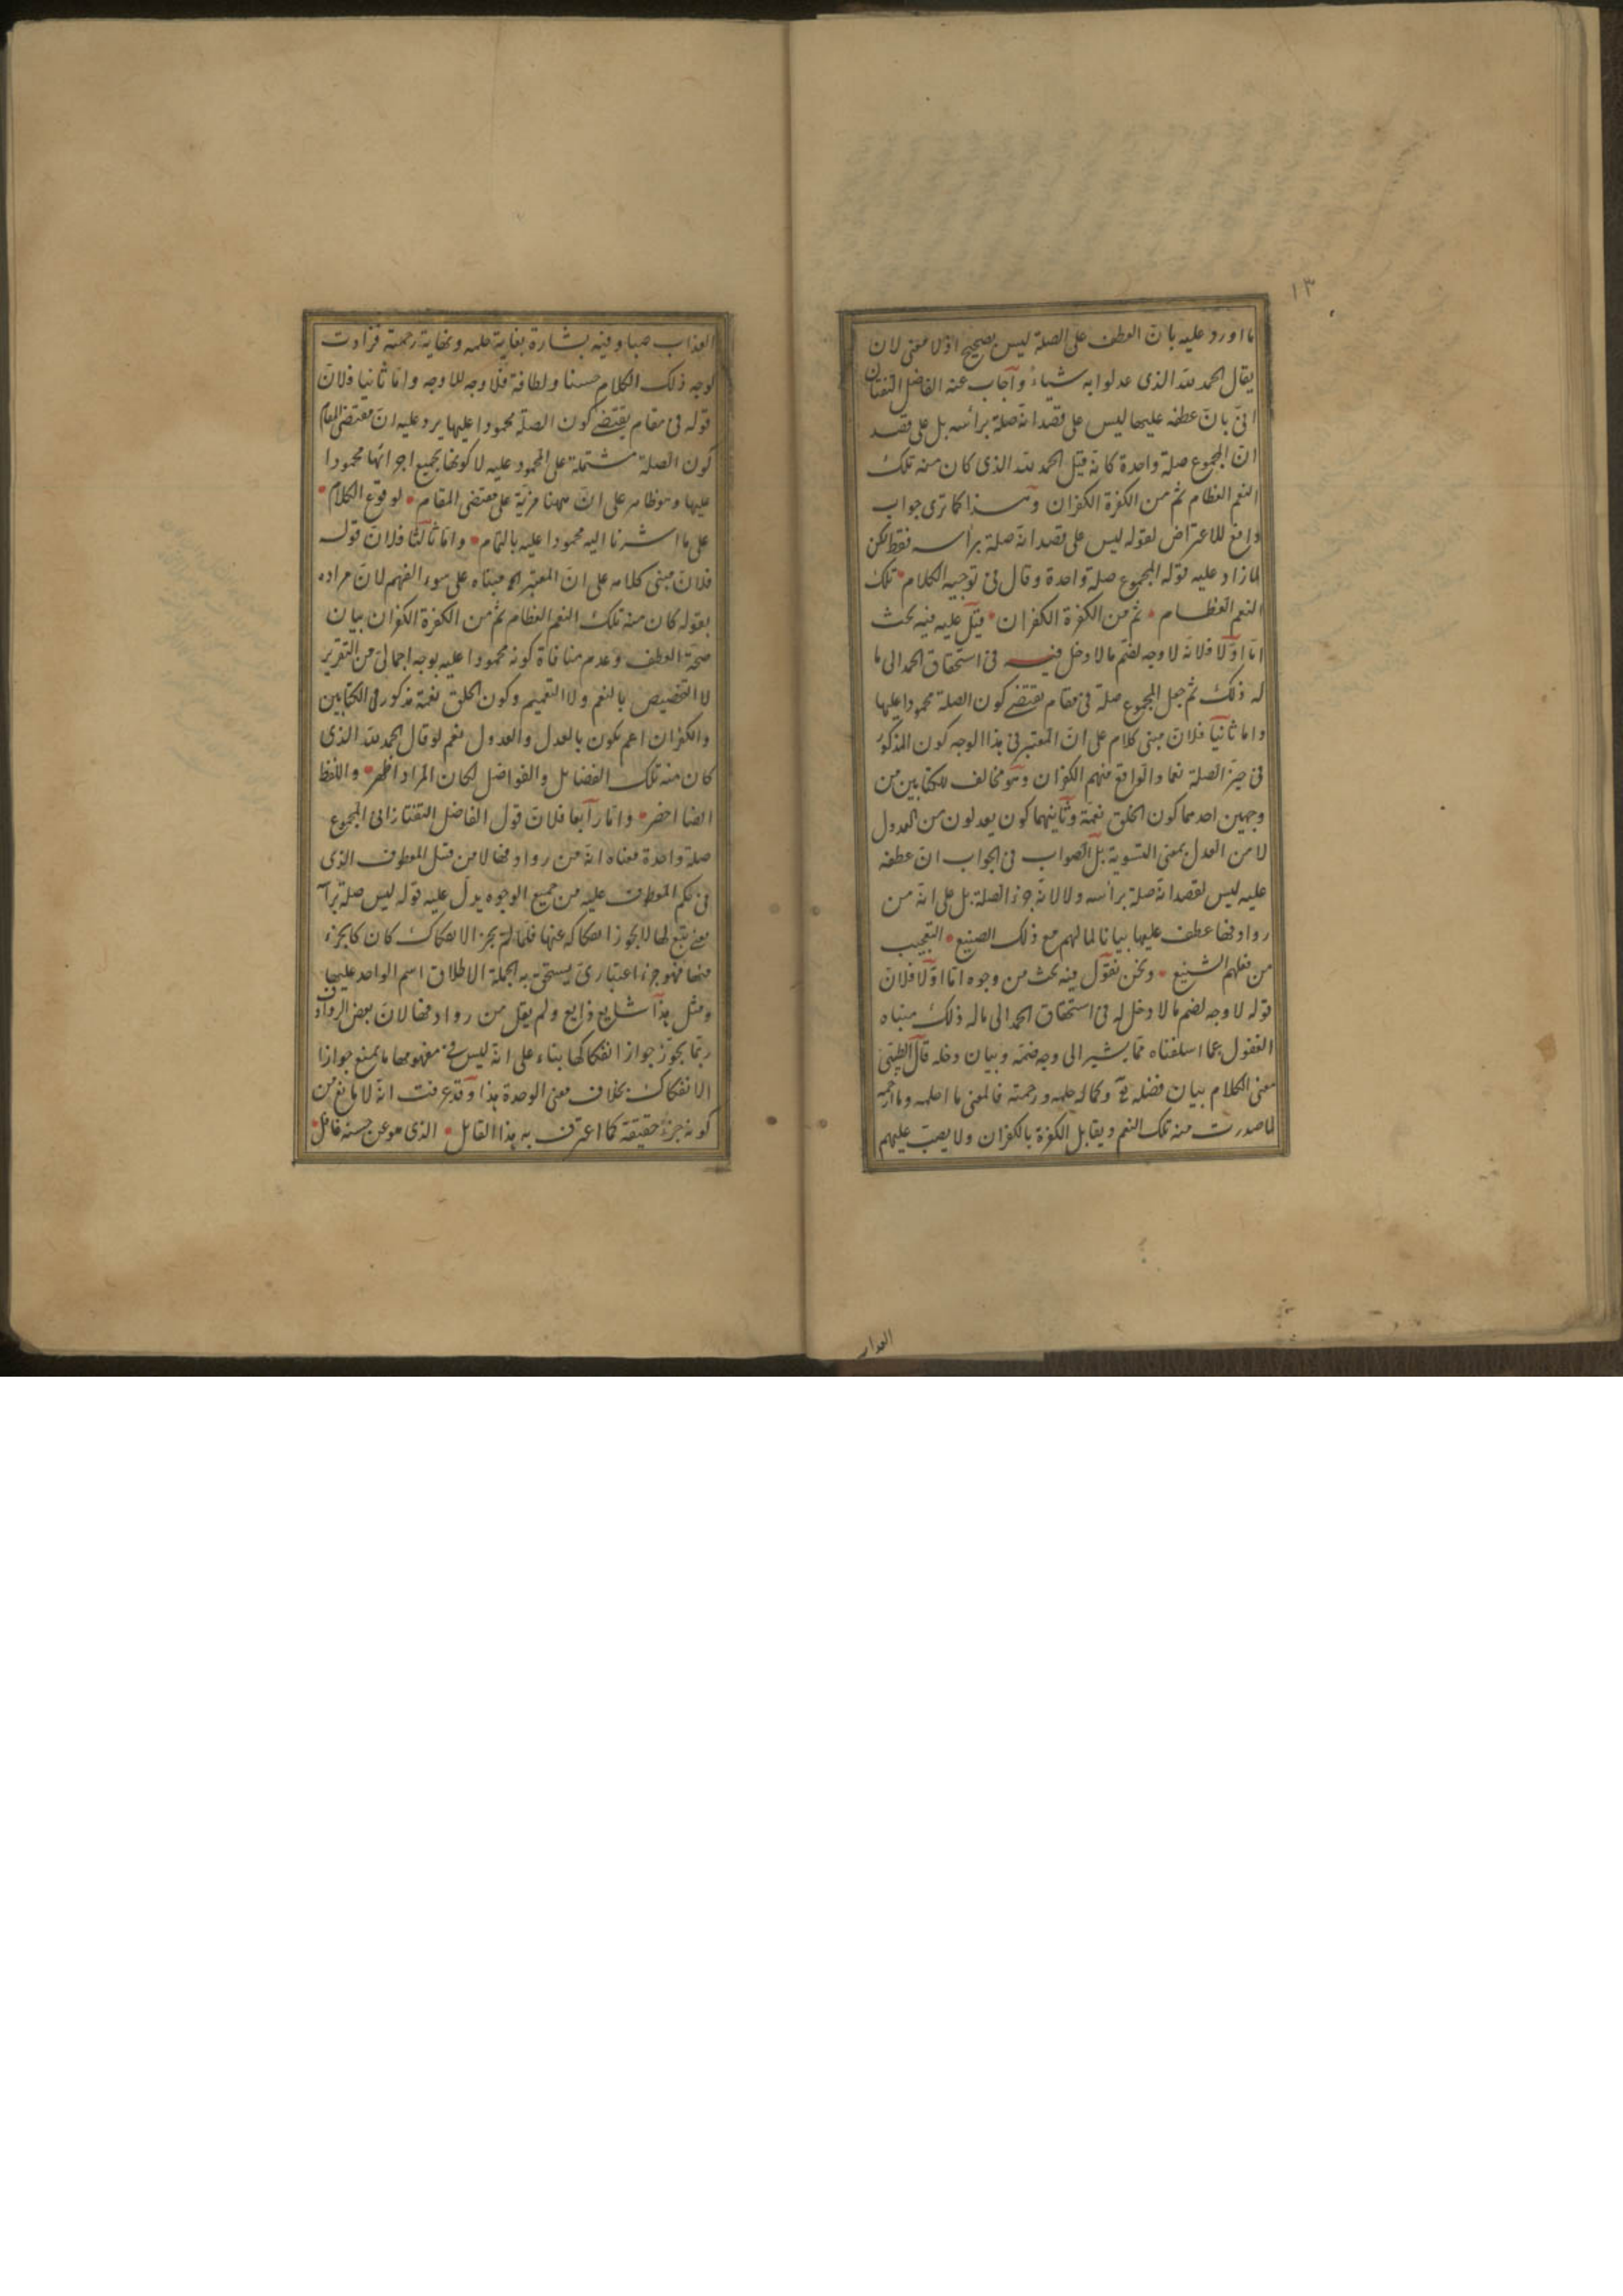 ١٣
ما اورد عليه بان العطف على الصلة ليس بصحيح اذ لا معنى لان
يقال الحمد لله الذى عدلوا به شياء واجاب عنه الفاضل التفتازا
نى بان عطفه عليها ليس على قصد انه صلة برأسه بل على قصد
ان المجموع صلة واحدة كانه قيل الحمد لله الذى كان منه تلك
النعم العظام ثم من الكفرة الكفران وهذا كما ترى جواب
دافع للاعتراض لقوله ليس على قصد انه صلة برأسه فقط لكن
لما زاد عليه قوله المجموع صلة واحدة وقال فى توجيه الكلام تلك
النعم العظام ثم من الكفرة الكفران قيل عليه فيه بحث
اما اولا فلانه لا وجه لضم ما لا دخل فيه فى استحقاق الحمد الى ما
له ذلك ثم جعل المجموع صلة فى مقام يقتضى كون الصلة محمودا عليها
واما ثانيا فلان مبنى كلام على ان المعتبر فى هذا الوجه كون المذكور
فى حيز الصلة نعما والواقع منهم الكفران وهو مخالف للكتابين من
وجهين احدهما كون الخلق نعمة وثانيهما كون يعدلون من العدول
لا من العدل بمعنى التسوية بل الصواب فى الجواب ان عطفه
عليه ليس لقصد انه صلة برأسه ولا لانه جزء الصلة بل على انه من
روادفها عطف عليها بيانا لما لهم مع ذلك الصنيع التعجيب
من فعلهم الشنيع ونحن نقول فيه بحث من وجوه اما اولا فلان
قوله لا وجه لضم ما لا دخل له فى استحقاق الحمد الى ما له ذلك مبناه
الغفول عما اسلفناه مما يشير الى وجه ضمه وبيان دخله قال الطيبى
معنى الكلام بيان فضله تع وكمال حلمه ورحمته فالمعنى ما احلمه وما ارحمه
لما صدرت منه تلك النعم ويقابل الكفرة بالكفران ولا يصب عليهم
العذاب
العذاب صبا وفيه بشارة بغاية حلمه ونهاية رحمته فزادت
لوجه ذلك الكلام حسنا ولطافة فلا وجه للاوجه واما ثانيا فلان
قوله فى مقام يقتضى كون الصلة محمودا عليها يرد عليه ان مقتضى المقام
كون الصلة مشتملة على المحمود عليه لا كونها بجميع اجزائها محمودا
عليها وهو ظاهر على ان ههنا مزية على مقتضى المقام لوقوع الكلام
على ما اشرنا اليه محمودا عليه بالتمام واما ثالثا فلان قوله
فلان مبنى كلامه على ان المعتبر الخ مبناه على سوء الفهم لان مراده
بقوله كان منه تلك النعم العظام ثم من الكفرة الكفران بيان
صحة العطف وعدم منافاة كونه محمودا عليه بوجه اجمالى من التقرير
لا التخصيص بالنعم ولا التعميم وكون الخلق نعمة مذكور فى الكتابين
والكفران اعم يكون بالعدل والعدول نعم لو قال الحمد لله الذى
كان منه تلك الفضايل والفواضل لكان المراد اظهر واللفظ
ايضا اخصر واما رابعا فلان قول الفاضل التفتازانى المجموع
صلة واحدة معناه انه من روادفها لا من قبل المعطوف الذى
فى حكم المعطوف عليه من جميع الوجوه يدل عليه قوله ليس صلة برأ
معنى تبع لها لا يجوز انفكاكه عنها فلما لم يجز الانفكاك كان كالجزء
منها فهو جزء اعتبارى يستحق به الجملة الاطلاق اسم الواحد عليها
ومثل هذا شايع ذايع ولم يقل من روادفها لان بعض الروادف
ربما يجوز جواز انفكاكها بناء على انه ليس فى مفهومها ما يمنع جواز
الانفكاك بخلاف معنى الوحدة هذا وقد عرفت انه لا مانع من
كونه جزء حقيقة كما اعترف به هذا القايل الذى هو عن حسنه غافل